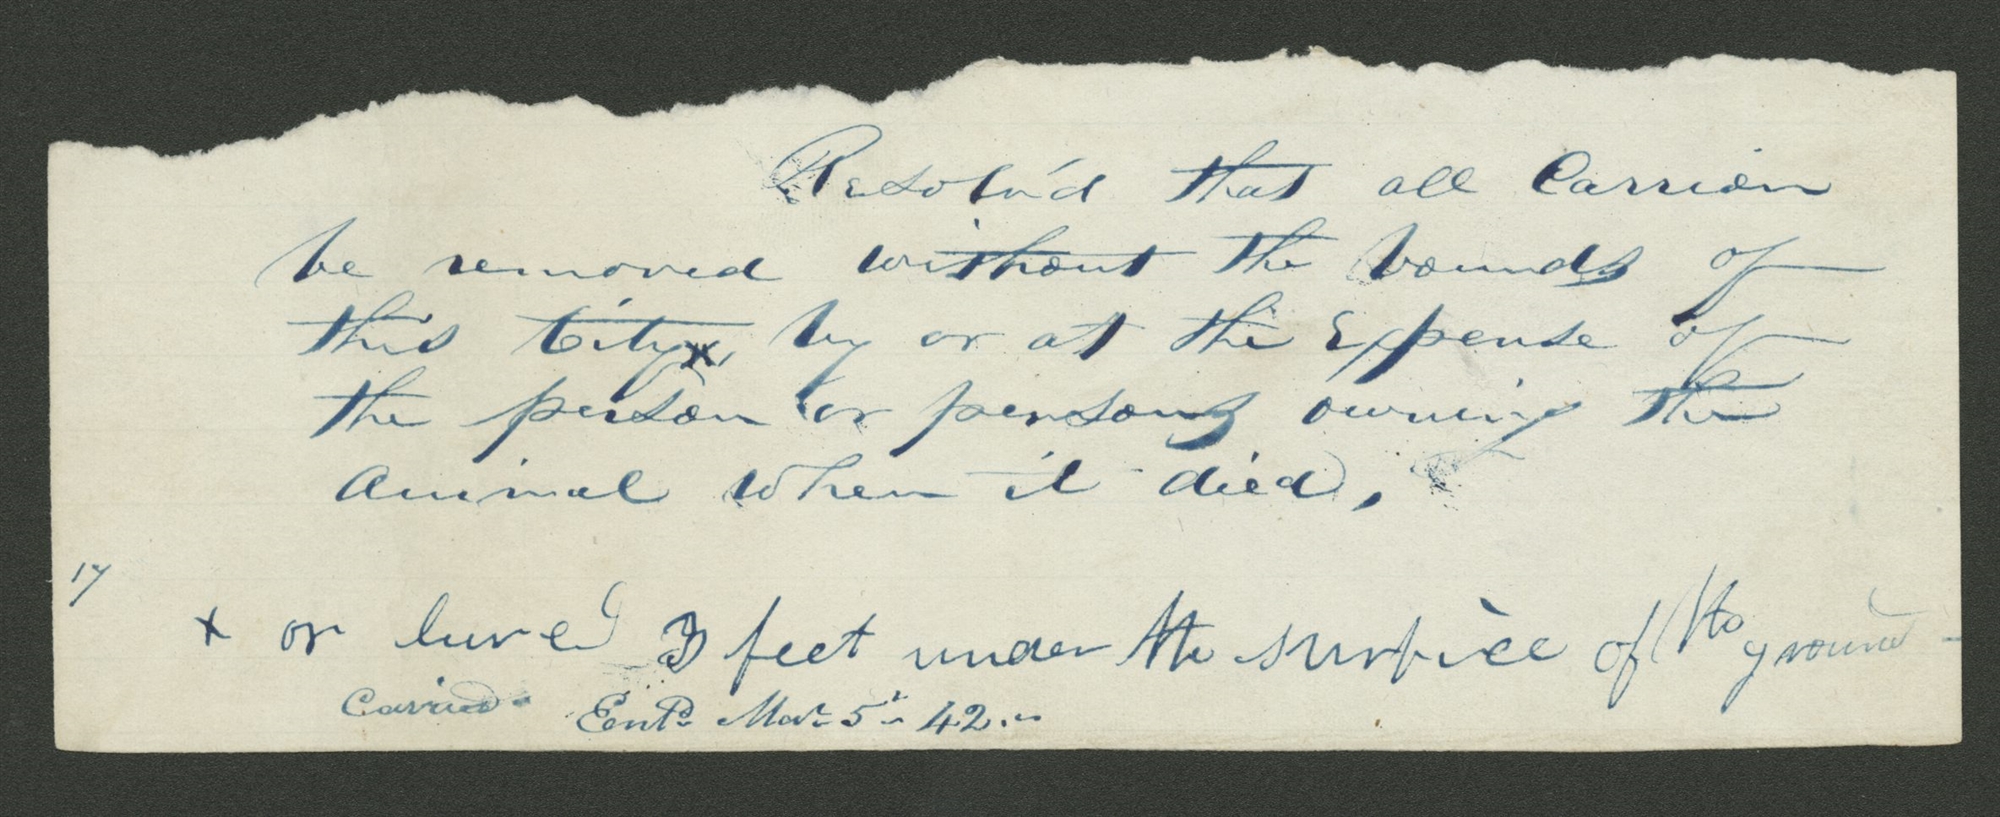 Resolv'd that all Carrion
be removed without the bounds of
this City x, by or at the Expense of
the person or persons owning the
Animal when it died,
17
x or bured 3 feet under the surface of the ground
Carried Entd. Mar. 5th 42.